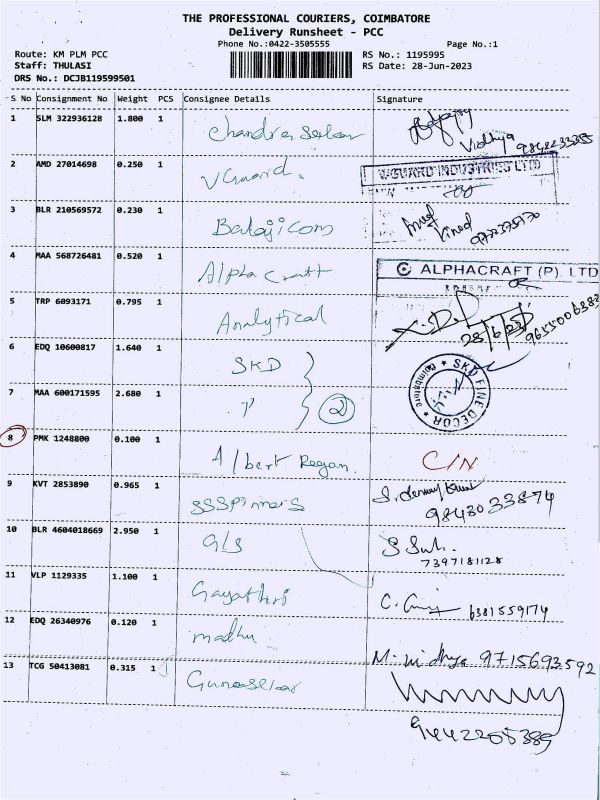 THE PROFESSIONAL COURIERS, COIMBATORE
Delivery Runsheet - PCC
Phone No.:0422-3505555 Page No.:1
Route: KM PLM PCC RS No.: 1195995
Staff: THULASI RS Date: 28-Jun-2023
DRS No.: DCJB119599501
S No Consignment No Weight PCS Consignee Details Signature
1 SLM 322936128 1.800 1 Chandrasekar
Vidhya 9842233355
2 AMD 27014698 0.250 1 VGuard.
V-GUARD INDUSTRIES LTD
3 BLR 210569572 0.230 1 Balaji Coms
Vinod
4 MAA 568726481 0.520 1 Alpha Craft
ALPHACRAFT (P). LTD
5 TRP 6093171 0.795 1 Analytical
28/6/23 9655006382
6 EDQ 10600817 1.640 1 SKD
SKD FINE DECOR
Coimbatore
7 MAA 600171595 2.680 1 " 2
8 PMK 1248800 0.100 1 Albert Regan. C/N
9 KVT 2853890 0.965 1 SSSpinners
9843033874
10 BLR 4604018669 2.950 1 GLS
7397181128
11 VLP 1129335 1.100 1 Gayathri
6381559174
12 EDQ 26340976 0.120 1 madhu
M. nidhya 9715693592
13 TCG 50413081 0.315 1 Gunasekar
9442205389